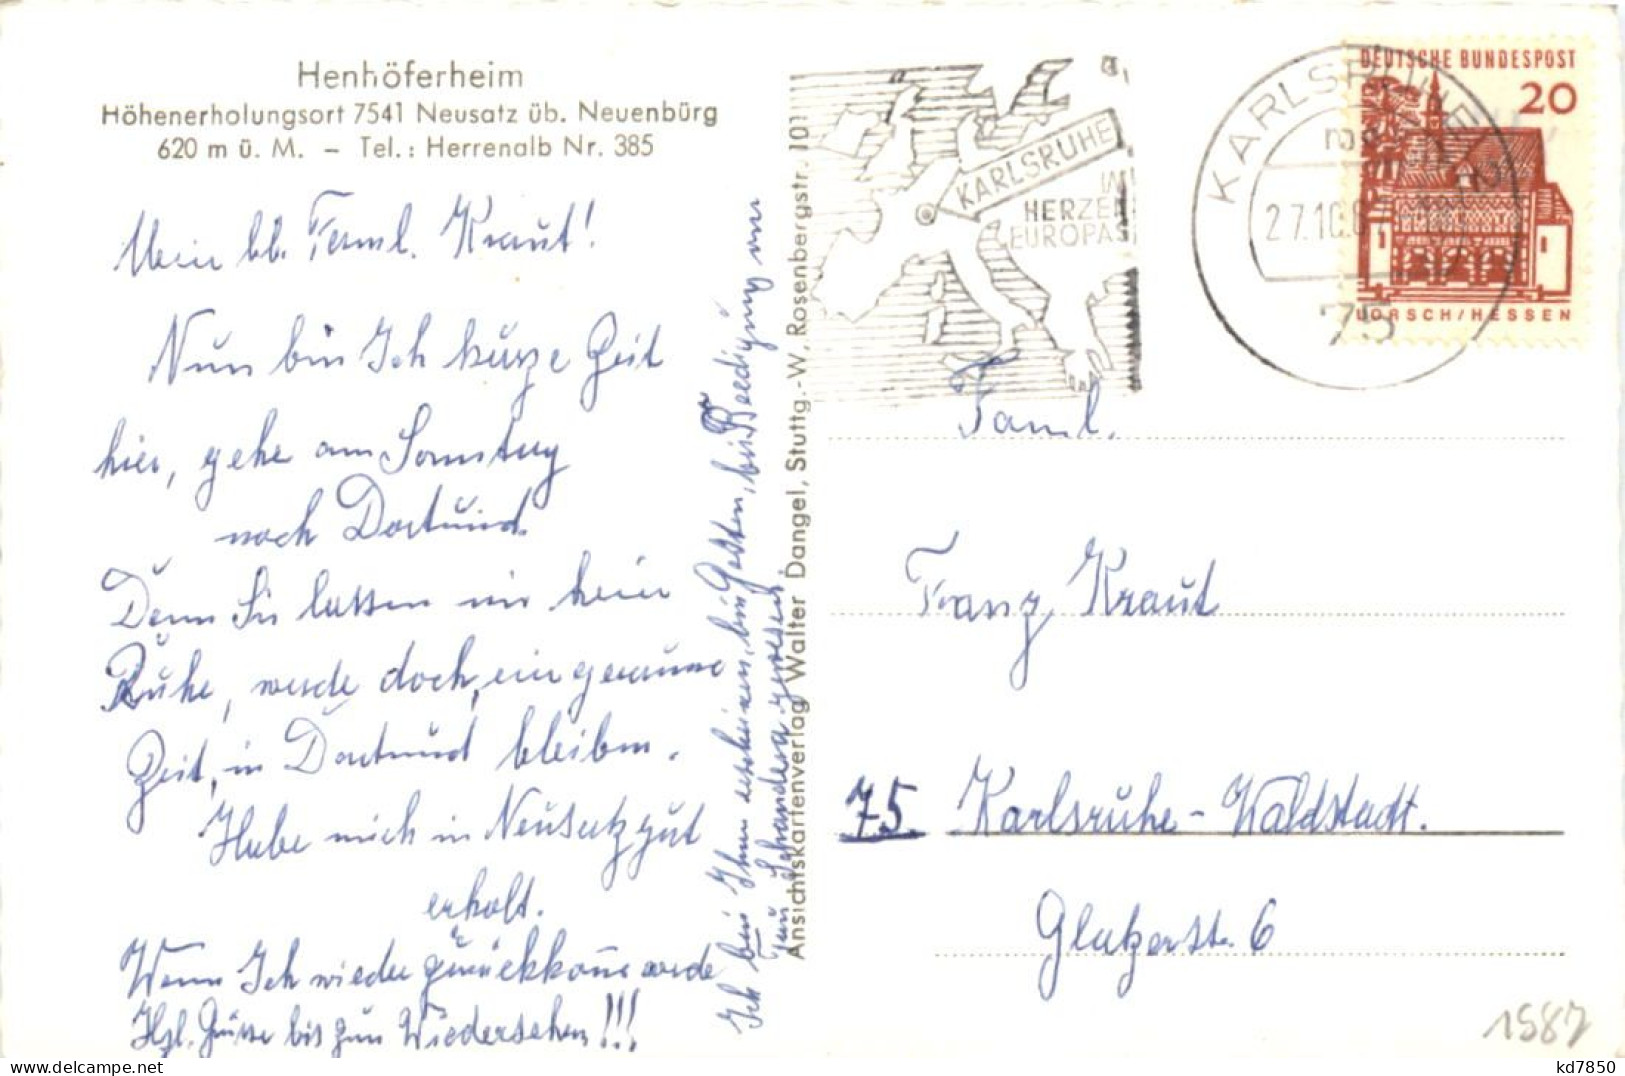 Henhöferheim
Höhenerholungsort 7541 Neusatz üb. Neuenbürg
620 m ü. M. – Tel.: Herrenalb Nr. 385
Mein lb. Faml. Kraut!
Nun bin Ich kurze Zeit
hier, gehe am Sonntag
nach Dortmund.
Denn Sie lassen mir kein
Ruhe, werde doch, ein genaume
Zeit, in Dortmund bleiben.
Habe mich in Neusatz gut
erholt.
Wenn Ich wieder zurückkome werde
Ich bei Ihnen erscheinen, bin Gestern, bei Beerdigung von
Frau Schandera gewesen.
Hzl. Grüsse bis zum Wiedersehen!!!
Ansichtskartenverlag Walter Dangel, Stuttg.-W, Rosenbergstr. 101
KARLSRUHE
IM
HERZEN
EUROPAS
KARLSRUHE
27.10.6
75
DEUTSCHE BUNDESPOST
20
LORSCH/HESSEN
Faml.
Franz Kraut
75 Karlsruhe-Waldstadt.
Glatzerstr. 6
1587
kd7850